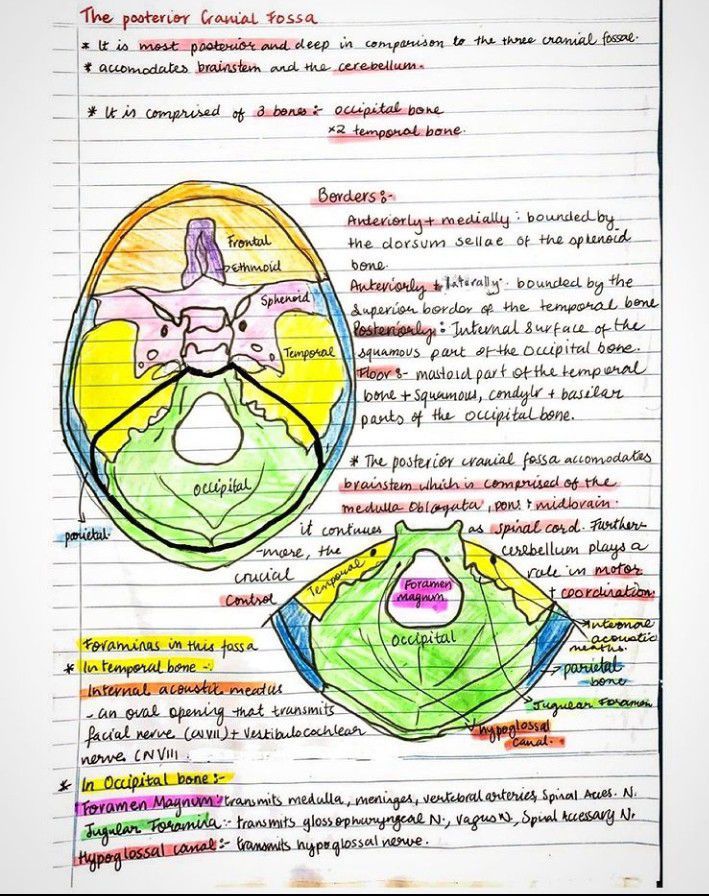 The posterior Cranial Fossa
* It is most posterior and deep in comparison to the three cranial fossae.
* accomodates brainstem and the cerebellum.
* It is comprised of 3 bones:- occipital bone
x2 temporal bone.
Borders:-
Anteriorly + medially: bounded by
the dorsum sellae of the sphenoid
bone.
Anteriorly + laterally: bounded by the
superior border of the temporal bone
Posteriorly: Internal surface of the
squamous part of the occipital bone.
Floor:- mastoid part of the temporal
bone + squamous, condylr + basilar
parts of the occipital bone.
Frontal
Ethmoid
Sphenoid
Temporal
Occipital
parietal.
* The posterior cranial fossa accomodates
brainstem which is comprised of the
medulla oblongata, pons + midbrain.
it continues as spinal cord. Further-
-more, the cerebellum plays a
crucial role in motor
Control + coordination.
Temporal
Foramen
magnum
Occipital
Internal
acoustic
meatus.
parietal
bone
Jugular Foramen
hypoglossal
canal.
Foraminas in this fossa
* In temporal bone -
Internal acoustic meatus
- an oval opening that transmits
facial nerve (CNVII) + vestibulocochlear
nerve CNVIII.
* In Occipital bone:-
Foramen Magnum: transmits medulla, meninges, vertebral arteries Spinal Acces. N.
Jugular Foramina:- transmits glossopharyngeal N., vagus N, Spinal Accessary N.
Hypoglossal canal:- transmits hypoglossal nerve.